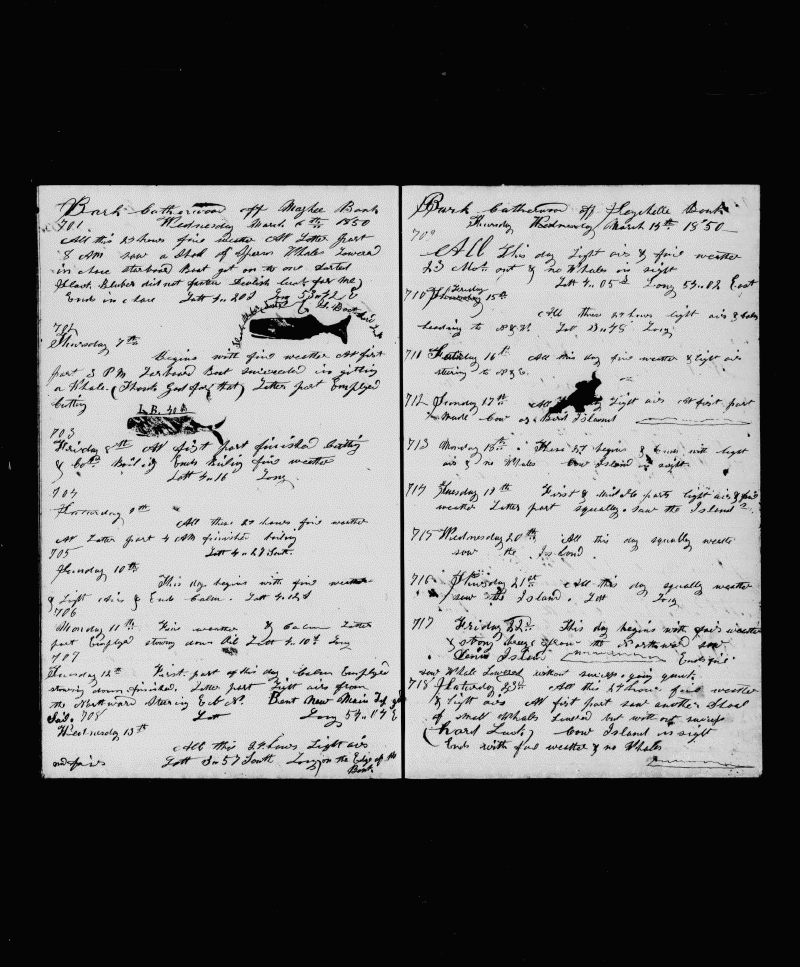 Bark Catherwood off Mayhee Bank
701 Wednesday March 6th 1850
All this 24 hours fine weather At Latter part
8 AM saw a Shoal of Sperm Whales Lowered
in chase starboard Boat got on to one darted
did not fasten luck for me
Ends in chase Latt 4..20 S Long 53..42 E
702
Thursday 7th
Begins with fine weather At first
part 3 PM Larboard Boat succeeded in getting
a Whale. (Thanks God for that) Latter part Employed
Cutting
L. B. 40 b
703
Friday 8th At first part finished Cutting
& Boiling Ends Boiling fine weather
Latt 4..16 Long
704
Saturday 9th
All these 24 hours fine weather
At Latter part 4 AM finished boiling
705 Latt 4..28 South.
Sunday 10th
This day begins with fine weather
& Light Airs & Ends Calm. Latt 4..12 S
706
Monday 11th Fine weather & Calm Latter
part Employed stowing down Oil Latt 4..10 S Long
707
Tuesday 12th First part of this day Calm Employed
stowing down finished. Latter part Light airs from
the Northward Steering E b N. Bent New Main
Sail. 708 Latt Long 54..04 E
Wednesday 13th
All this 24 hours Light airs
and fair Latt 3..57 South Long on the Edge of the
Bank.
Bark Catherwood off Seychelle Bank
Thursday Wednesday March 14th 1850
709
All This day Light airs & fine weather
23 Mos. out & no Whales in sight
Latt 4..05 S Long 54..02 East
710 Friday Thursday 15th
All these 24 hours light airs &
heading to Latt 3..48 Long
711 Saturday 16th All this day fine weather & light airs
steering to
712 Sunday 17th All this day Light airs At first part
Made Cow or Bird Island
713 Monday 18th. These 24 begins & Ends with light
airs & no Whales Cow Island in sight
714 Tuesday 19th First & Middle parts light airs & fine
weather Latter part squally. saw the Island
715 Wednesday 20th All this day squally weather
saw the Island.
716 Thursday 21st All this day squally weather
saw the Island. Latt Long
717 Friday 22nd This day begins with fair weather
& strong breeze from the Northward saw
Denis Island Ends fair
saw Whale Lowered without success
718 Saturday 23rd All this 24 hours fine weather
& light airs At first part saw another Shoal
of small Whales Lowered but without success
(hard Luck.) Cow Island in sight
Ends with fine weather & no Whales